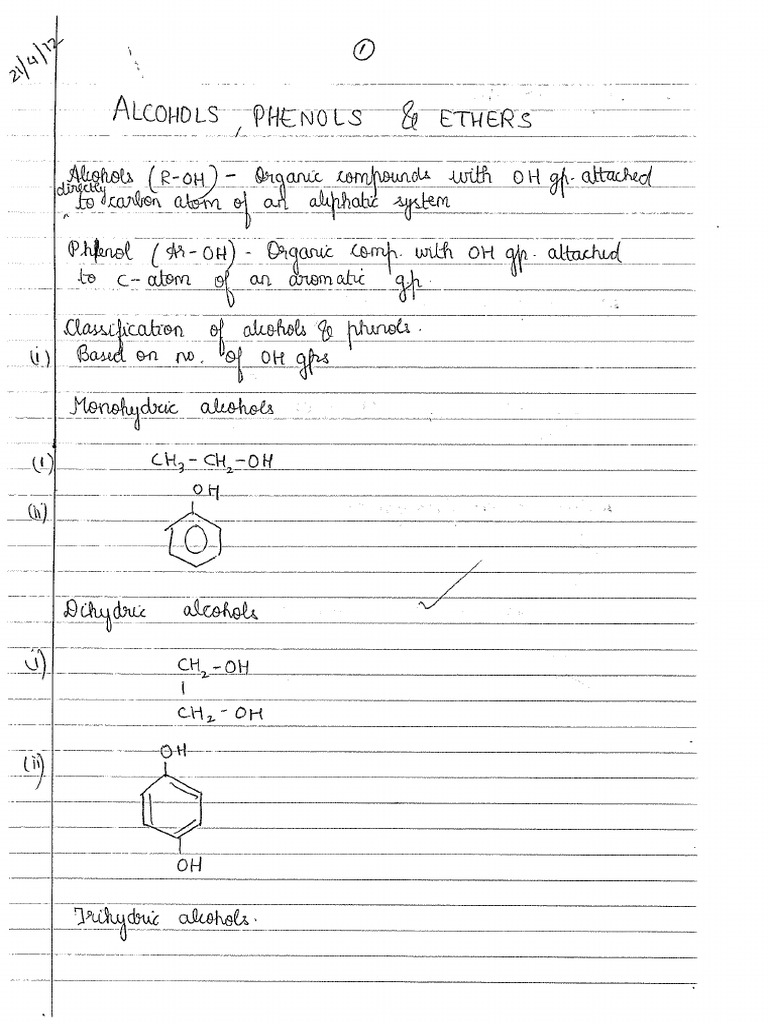 21/4/12
1
ALCOHOLS, PHENOLS & ETHERS
Alcohols (R-OH) - Organic compounds with OH gp. attached
directly
to carbon atom of an aliphatic system
Phenol (Ar-OH) - Organic comp. with OH gp. attached
to C-atom of an aromatic gp.
Classification of alcohols & phenols.
(i) Based on no. of OH gps
Monohydric alcohols
(i) CH3-CH2-OH
OH
(ii)
Dihydric alcohols
(i) CH2-OH
CH2-OH
OH
(ii)
OH
Trihydric alcohols.